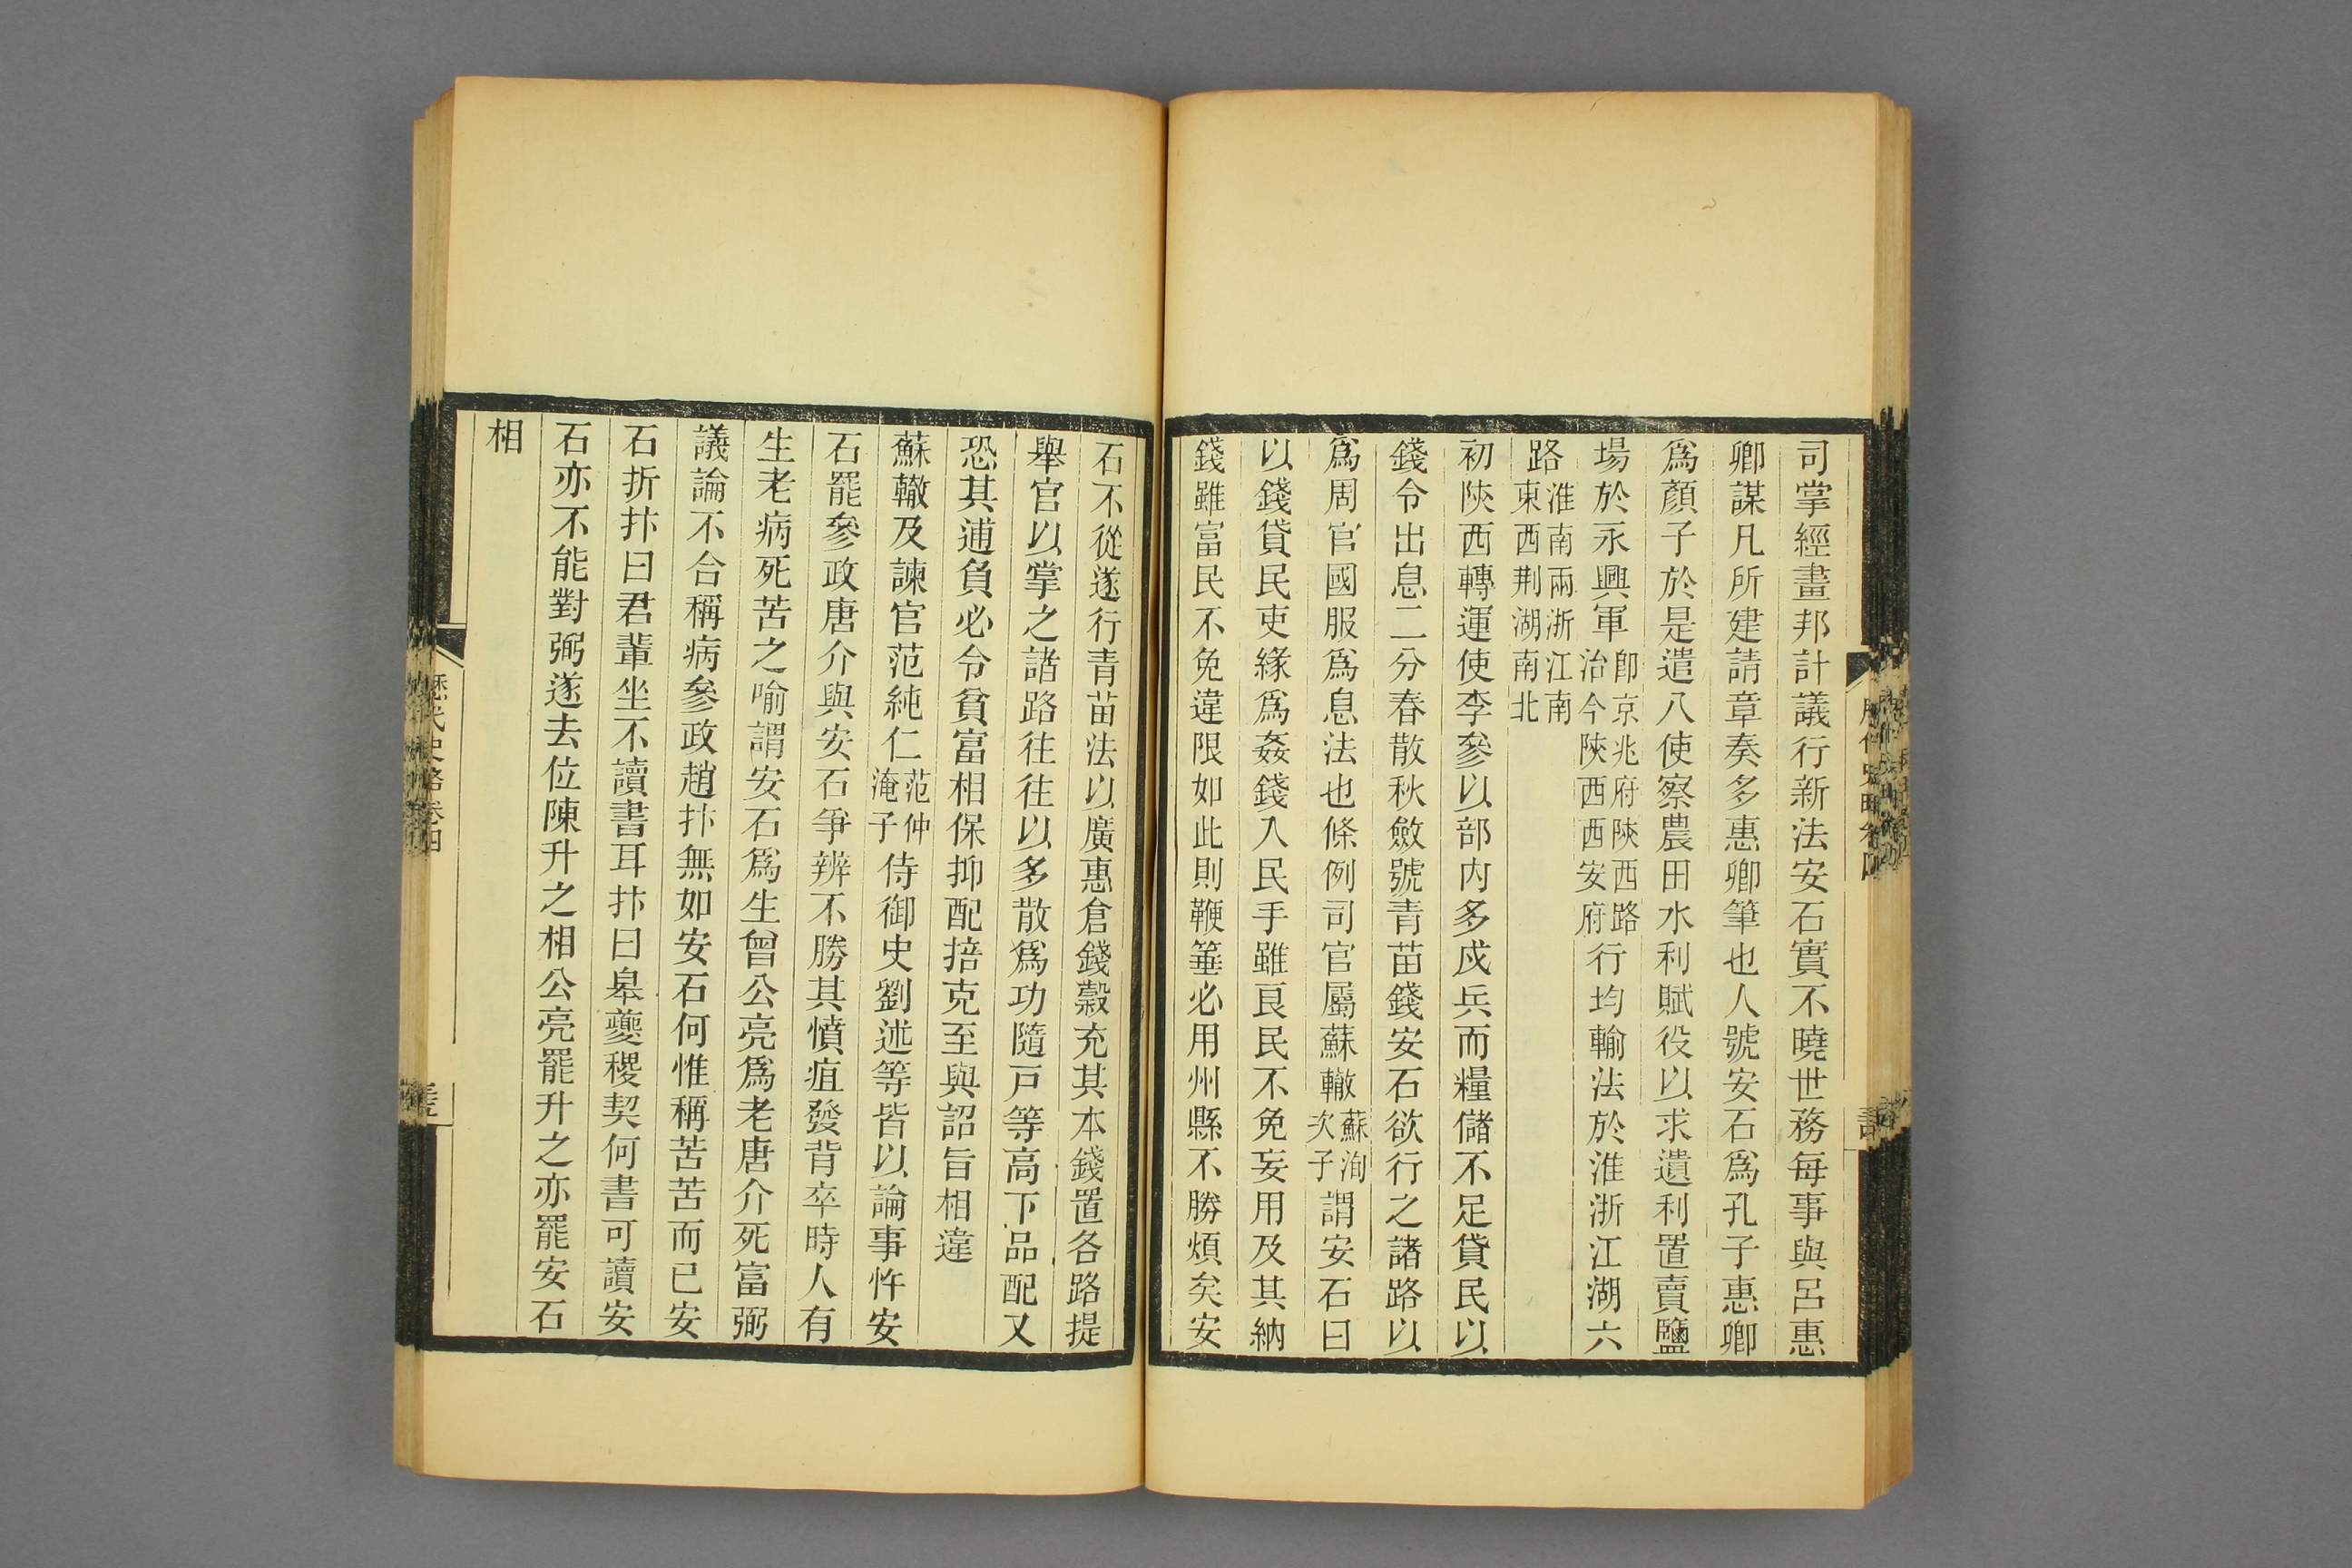 司掌經畫邦計議行新法安石實不曉世務每事與呂惠
卿謀凡所建請章奏多惠卿筆也人號安石爲孔子惠卿
爲顏子於是遣八使察農田水利賦役以求遺利置賣鹽
場於永興軍卽京兆府陝西路治今陝西西安府行均輸法於淮浙江湖六
路淮南兩浙江南東西荆湖南北
初陝西轉運使李參以部内多戍兵而糧儲不足貸民以
錢令出息二分春散秋斂號青苗錢安石欲行之諸路以
爲周官國服爲息法也條例司官屬蘇轍蘇洵次子謂安石曰
以錢貸民吏緣爲姦錢入民手雖良民不免妄用及其納
錢雖富民不免違限如此則鞭箠必用州縣不勝煩矣安
石不從遂行青苗法以廣惠倉錢穀充其本錢置各路提
舉官以掌之諸路往往以多散爲功隨戸等高下品配又
恐其逋負必令貧富相保抑配掊克至與詔旨相違
蘇轍及諫官范純仁范仲淹子侍御史劉述等皆以論事忤安
石罷參政唐介與安石爭辨不勝其憤疽發背卒時人有
生老病死苦之喻謂安石爲生曾公亮爲老唐介死富弼
議論不合稱病參政趙抃無如安石何惟稱苦苦而已安
石折抃曰君輩坐不讀書耳抃曰皋夔稷契何書可讀安
石亦不能對弼遂去位陳升之相公亮罷升之亦罷安石
相
歷代史略卷四